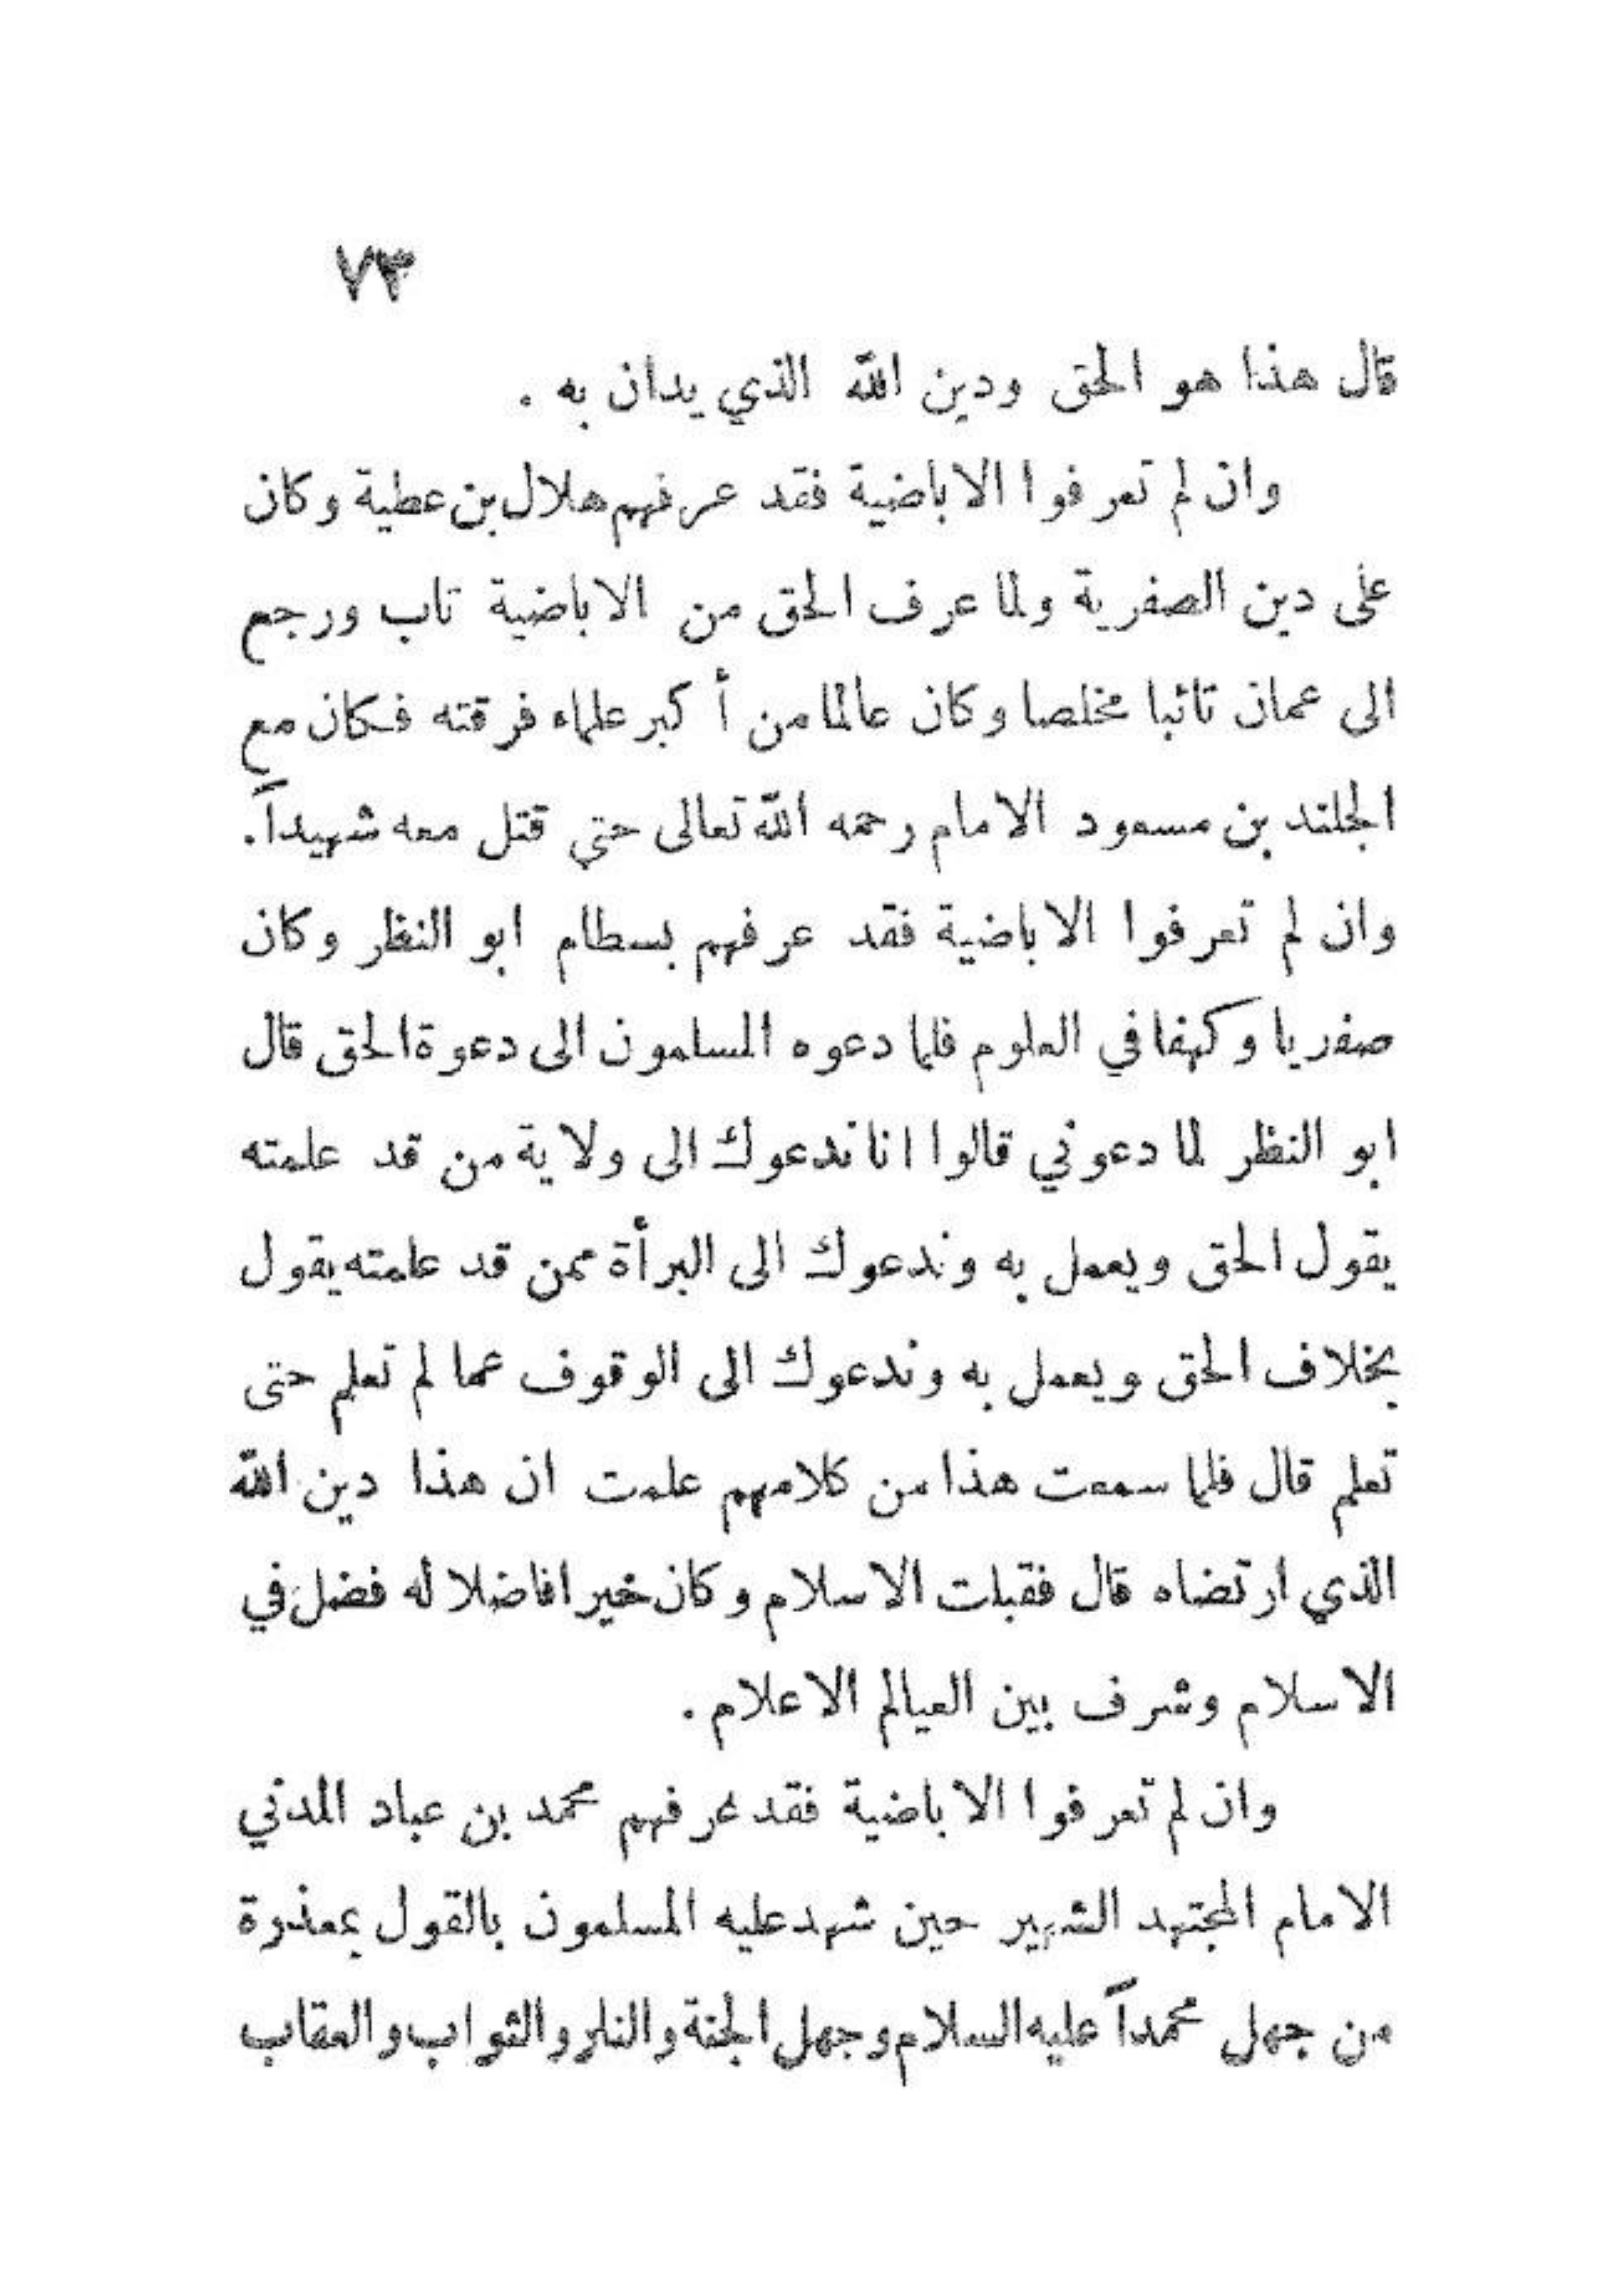 ٧٣
قال هذا هو الحق ودين الله الذي يدان به .
وان لم تعرفوا الاباضية فقد عرفهم هلال بن عطية وكان
على دين الصفرية ولما عرف الحق من الاباضية تاب ورجع
الى عمان تائبا مخلصا وكان عالما من أكبر علماء فرقته فكان مع
الجلند بن مسعود الامام رحمه الله تعالى حتي قتل معه شهيداً.
وان لم تعرفوا الاباضية فقد عرفهم بسطام ابو النظر وكان
صفريا وكهفا في العلوم فلما دعوه المسلمون الى دعوة الحق قال
ابو النظر لما دعوني قالوا انا ندعوك الى ولاية من قد علمته
يقول الحق ويعمل به وندعوك الى البرأة ممن قد علمته يقول
بخلاف الحق ويعمل به وندعوك الى الوقوف عما لم تعلم حتى
تعلم قال فلما سمعت هذا من كلامهم علمت ان هذا دين الله
الذي ارتضاه قال فقبلت الاسلام وكان خيرا فاضلا له فضل في
الاسلام وشرف بين العيالم الاعلام .
وان لم تعرفوا الاباضية فقد عرفهم محمد بن عباد المدني
الامام المجتهد الشهير حين شهد عليه المسلمون بالقول بمعذرة
من جهل محمداً عليه السلام وجهل الجنة والنار والثواب والعقاب